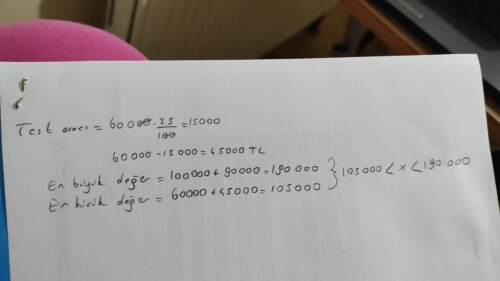 Test aracı = 60000 . 25/100 = 15000
60000 - 15000 = 45000 TL
En büyük değer = 100000 + 90000 = 190 000 } 105000 < x < 190 000
En küçük değer = 60000 + 45000 = 105000